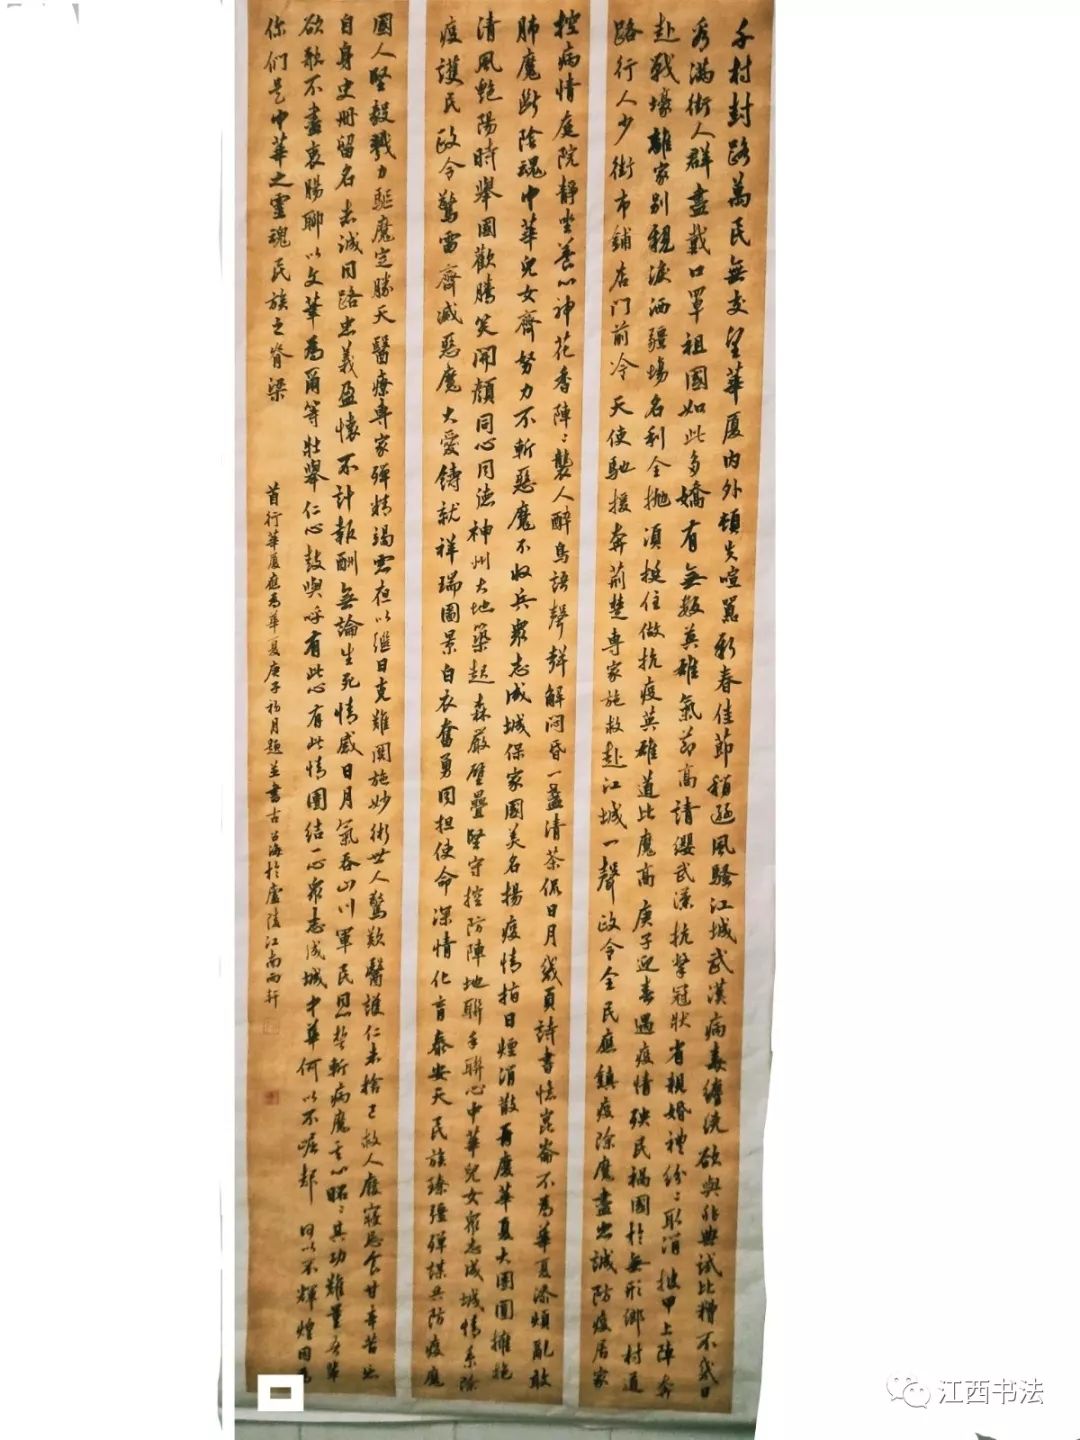 千村封路萬民無交望華厦内外頓失喧嚣新春佳節稍遜風騷江城武漢病毒纏繞欲與非典試比糟不幾日
秀滿街人群盡戴口罩祖國如此多嬌有無數英雄氣節高請纓武漢抗擊冠狀省親婚禮紛〻取消披甲上陣奔
赴戰壕離家别親淚洒疆場名利全抛頂梃住做抗疫英雄道比魔高庚子迎春遇疫情殃民禍國於無形鄉村道
路行人少街市鋪店门前冷天使馳援奔荊楚専家施救赴江城一聲政令全民應鎮疫除魔盡忠誠防疫居家
控病情庭院静坐養心神花香陣〻襲人醉鳥語聲聲解悶昏一盞清茶侃日月幾頁詩書憶崑崙不為華夏添煩亂敢
肺魔斷陰魂中華兒女齊努力不斬惡魔不收兵衆志成城保家國美名揚疫情指日煙消散再慶華夏大團圓擁抱
清風艶陽時舉國歡騰笑開顔同心同德神州大地築起森嚴壁壘堅守控防陣地聯手聯心中華兒女衆志成城情系除
疫護民政令驚雷齊滅惡魔大愛鑄就祥瑞圖景白衣奮勇同担使命深情化育泰安天民族臻强殫謀共防疫魔
國人堅毅戮力驅魔定勝天醫療専家殫精竭慮夜以繼日克難関施妙術世人驚歎醫護仁未捨己救人廢寢忘食甘辛苦忘
自身史册留名赤誠同路忠義盈懷不計報酬無論生死情感日月氣吞山川軍民恩誓斬病魔其心昭〻其功難量吾輩
欲歌不盡衷腸聊以文華為爾等壯舉仁心鼓與呼有此心有此情團結一心衆志成城中華何以不崛起何以不輝煌因為
你们是中華之靈魂民族之脊梁
首行華厦應為華夏庚子初月題並書古海於廬陵江南雨軒
江西书法